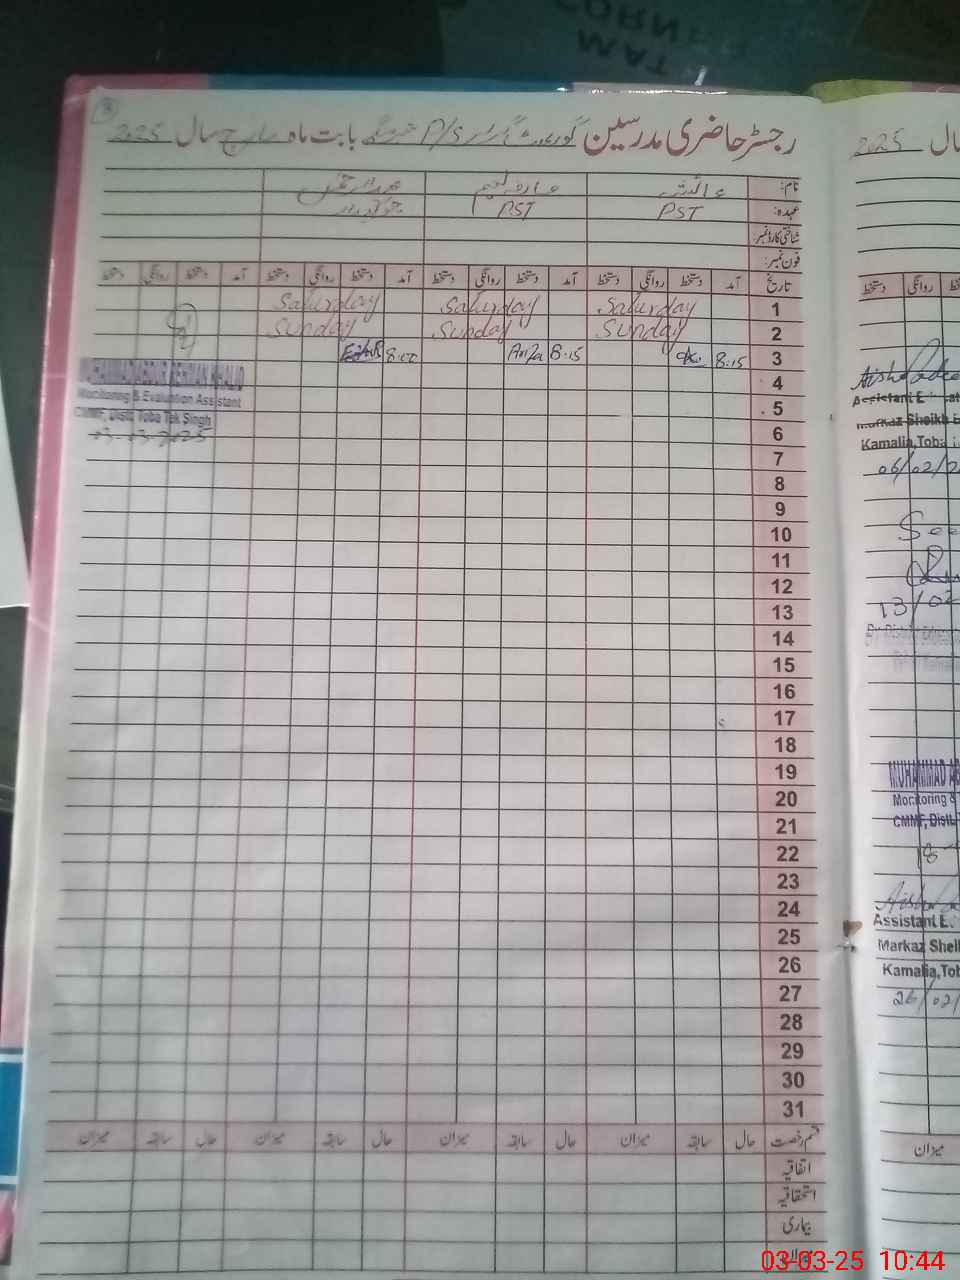 رجسٹر حاضری مدرسین گورنمنٹ گرلز P/S بابت ماہ مارچ سال 2025
نام:
عہدہ: PST PST
شناختی کارڈ نمبر:
فون نمبر:
تاریخ آمد دستخط روانگی دستخط آمد دستخط روانگی دستخط آمد دستخط روانگی دستخط آمد دستخط روانگی دستخط
1 Saturday Saturday Saturday
2 Sunday Sunday Sunday
3 8:15 8:15 8:00
MUHAMMAD ABDUR REHMAN KHALID
Monitoring & Evaluation Assistant
CMMF, Distt: Toba Tek Singh
03-03-2025
4
5
6
7
8
9
10
11
12
13
14
15
16
17
18
19
20
21
22
23
24
25
26
27
28
29
30
31
قسم رخصت حال سابقہ میزان حال سابقہ میزان حال سابقہ میزان حال سابقہ میزان
اتفاقیہ
استحقاقیہ
بیماری
سال 2025
روانگی دستخط
Assistant E
Markaz Sheikh
Kamalia, Toba
06/02/2
See
13/02
MUHAMMAD AB
Monitoring &
CMMF, Distt:
18
Assistant E
Markaz Sheik
Kamalia, Tob
26/02/
میزان
CORNER
MAT
03-03-25 10:44